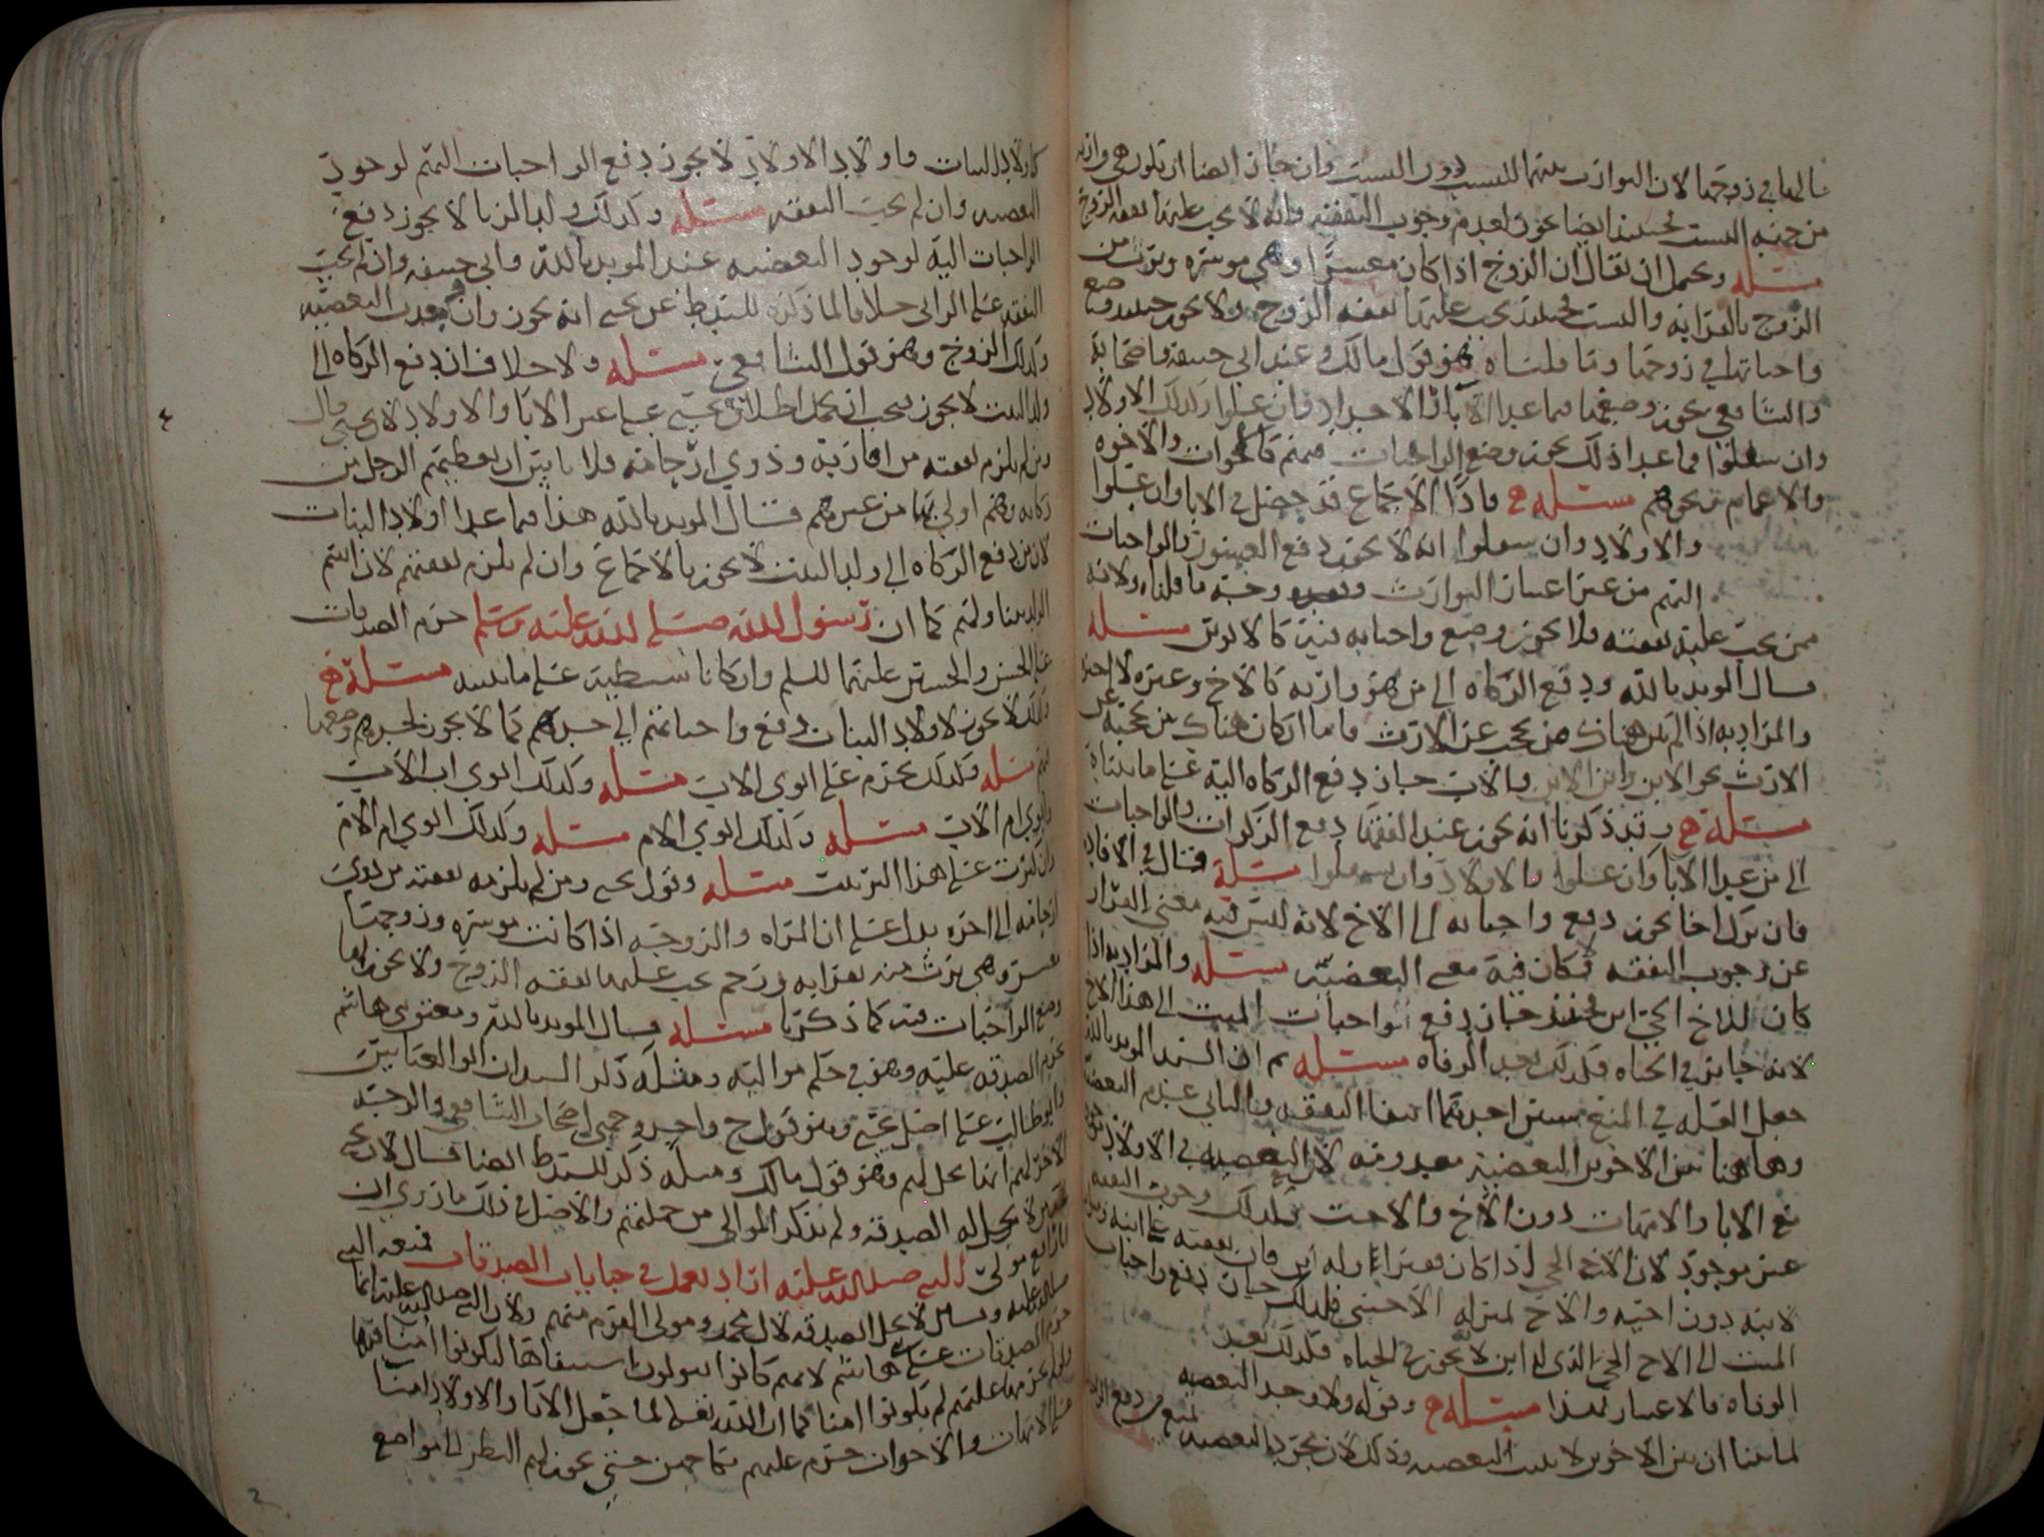 مالها في زوجها لان التوارث بينهما للنسب دون السبب وان جاز ايضا ان تكون هي وارثه
من جهة السبب فحينئذ ايضا يجوز لعدم وجوب النفقة وانه لا يجب عليها نفقة الزوج
مسئله ويحمل ان يقال ان الزوج اذا كان معسرا وهي موسره وترث من
الزوج بالقرابه والسبب فحينئذ يجب عليها نفقه الزوج ولا يجوز حينئذ وضع
واجباتها في زوجها وما قلناه هو قول مالك وعند ابي حنيفه واصحابه
والشافعي يجوز وضعها فيما عدا الآباء والاجداد وان علوا وكذلك الاولاد
وان سفلوا فما عدا ذلك يجوز وضع الواجبات فيهم كالاخوات والاخوه
والاعمام ونحوهم مسئله ح فاذا الاجماع قد حصل في الابا وان علوا
والاولاد وان سفلوا انه لا يجوز دفع العشور والواجبات
اليهم من غير اعتبار التوارث ووجه ما قلناه ولانه
ممن يجب عليه نفقته فلا يجوز وضع واجباته فيه كالابوين مسئله
قال المويد بالله ودفع الزكاه الى من هو وارثه كالاخ وغيره لا يجوز
والمراد به اذا لم يكن هناك من يحجبه عن الارث فاما ان كان هناك من يحجبه عن
الارث نحو الابن وابن الابن والاب جاز دفع الزكاه اليه على ما بيناه
مسئله ح وقد ذكرنا انه يجوز عند الفقها دفع الزكوات والواجبات
الى من عدا الآبا وان علوا والاولاد وان سفلوا مسئلة قال في الافاده
فان ترك اخا يجوز دفع واجباته الى الاخ لانه ليس فيه معنى القرابه
عن وجوب النفقه فكان فيه معنى البعضيه مسئله والمراد به اذا
كان للاخ الحي ابن فحينئذ جاز دفع واجبات الميت الى هذا الاخ
لانه جايز في الحياه فكذلك بعد الوفاه مسئله ثم ان السيد المويد بالله
جعل العله في المنع شيين احدهما النفقه والثاني عدم البعضيه
وهاهنا بين الاخوين البعضيه لان البعضيه في الاولاد
مع الابا والامهات دون الاخ والاخت فكذلك وجوب النفقه
غير موجود لان الاخ الحي اذا كان فقيرا وله ابن فان نفقته على ابنه
لابنه دون اخيه والاخ بمنزله الاجنبي فلذلك جاز دفع واجبات
الميت الى الاخ الحي الذي له ابن لا يجوز في الحياه فكذلك بعد
الوفاه فالاعتبار بهذا مسئله ح وقوله ولا وجد البعضيه
لما بينا ان بين الاخوين لا يثبت البعضيه وذلك لان يجرد البعضيه تمنع من دفع
كاولاد البنات واولاد الاولاد لا يجوز دفع الواجبات اليهم لوجود
البعضيه وان لم يجب النفقه مسئله وكذلك ولد الزنا لا يجوز دفع
الواجبات اليه لوجود البعضيه عند المويد بالله وابي حنيفه وان لم يجب
النفقه على الزاني خلافا لما ذكره للسيد ط عن يحيى انه يجوز وان وجدت البعضيه
وكذلك الزوج وهو قول الشافعي مسئله ولا خلاف ان دفع الزكاه الى
ولد البنت لا يجوز فيجب ان يحمل اطلاق يحيى على غير الآبا والاولاد لان يحيى قال
ومن لم يلزم نفقته من اقاربه وذوي ارحامه فلا باس ان يعطيهم الرجل من
زكاته وهم اولى بها من غيرهم قال المويد بالله هذا فيما عدا اولاد البنات
لان من دفع الزكاه الى ولد البنت لا يجوز بالاجماع وان لم يلزم نفقتهم لان اسم
الولد يتناولهم كما ان رسول الله صلى الله عليه وسلم حرم الصدقات
على الحسن والحسين عليهما السلم وان كانا سبطيه على ما بينته مسئلة ح
وكذلك لا يجوز لاولاد البنات دفع واجباتهم الى جدهم كما لا يجوز لجدهم وضعها
فيهم مسئله وكذلك يحرم على ابوي الاب مسئله وكذلك ابوي اب الاب
وابوي ام الاب مسئله وكذلك ابوي الام مسئله وكذلك ابوي ام الام
وان كثرت على هذا الترتيب مسئله وقول يحيى ومن لم يلزمه نفقته من ذوي
ارحامه الى اخره يدل على ان المراه والزوجه اذا كانت موسره وزوجها
معسر وهي ترث منه بقرابه ورحم يجب عليها نفقه الزوج ولا يجوز لها
وضع الواجبات فيه كما ذكرنا مسئله قال المويد بالله ومعتق بني هاشم
يحرم الصدقه عليه وهو في حكم مواليه ومثله ذكر السيدان ابو العباس
وابو طالب على اصل يحيى وهو قول ح واحد وجهي اصحاب الشافعي والوجه
الاخر لهم انها تحل لهم وهو قول مالك ومثله ذكر للسيد ط ايضا قال لان يحيى
لا يحل له الصدقه ولم يذكر الموالي من جملتهم والاصل في ذلك ما روي ان
ابا رافع مولى النبي صلى الله عليه اراد يعمل في جبايات الصدقات فمنعه النبي
صلى الله عليه وقال لا تحل الصدقه لال محمد ومولى القوم منهم ولان النبي صلى الله عليه انما
حرم الصدقات على بني هاشم لانهم كانوا يتولون استيفاها ليكونوا امنا فيها
ولو لم يحرمها عليهم لم يكونوا امنا كما ان الله تعالى لما جعل الآبا والاولاد امنا
على الامهات والاخوات حرم عليهم نكاحهن حتى يجوز لهم النظر الى مواضع